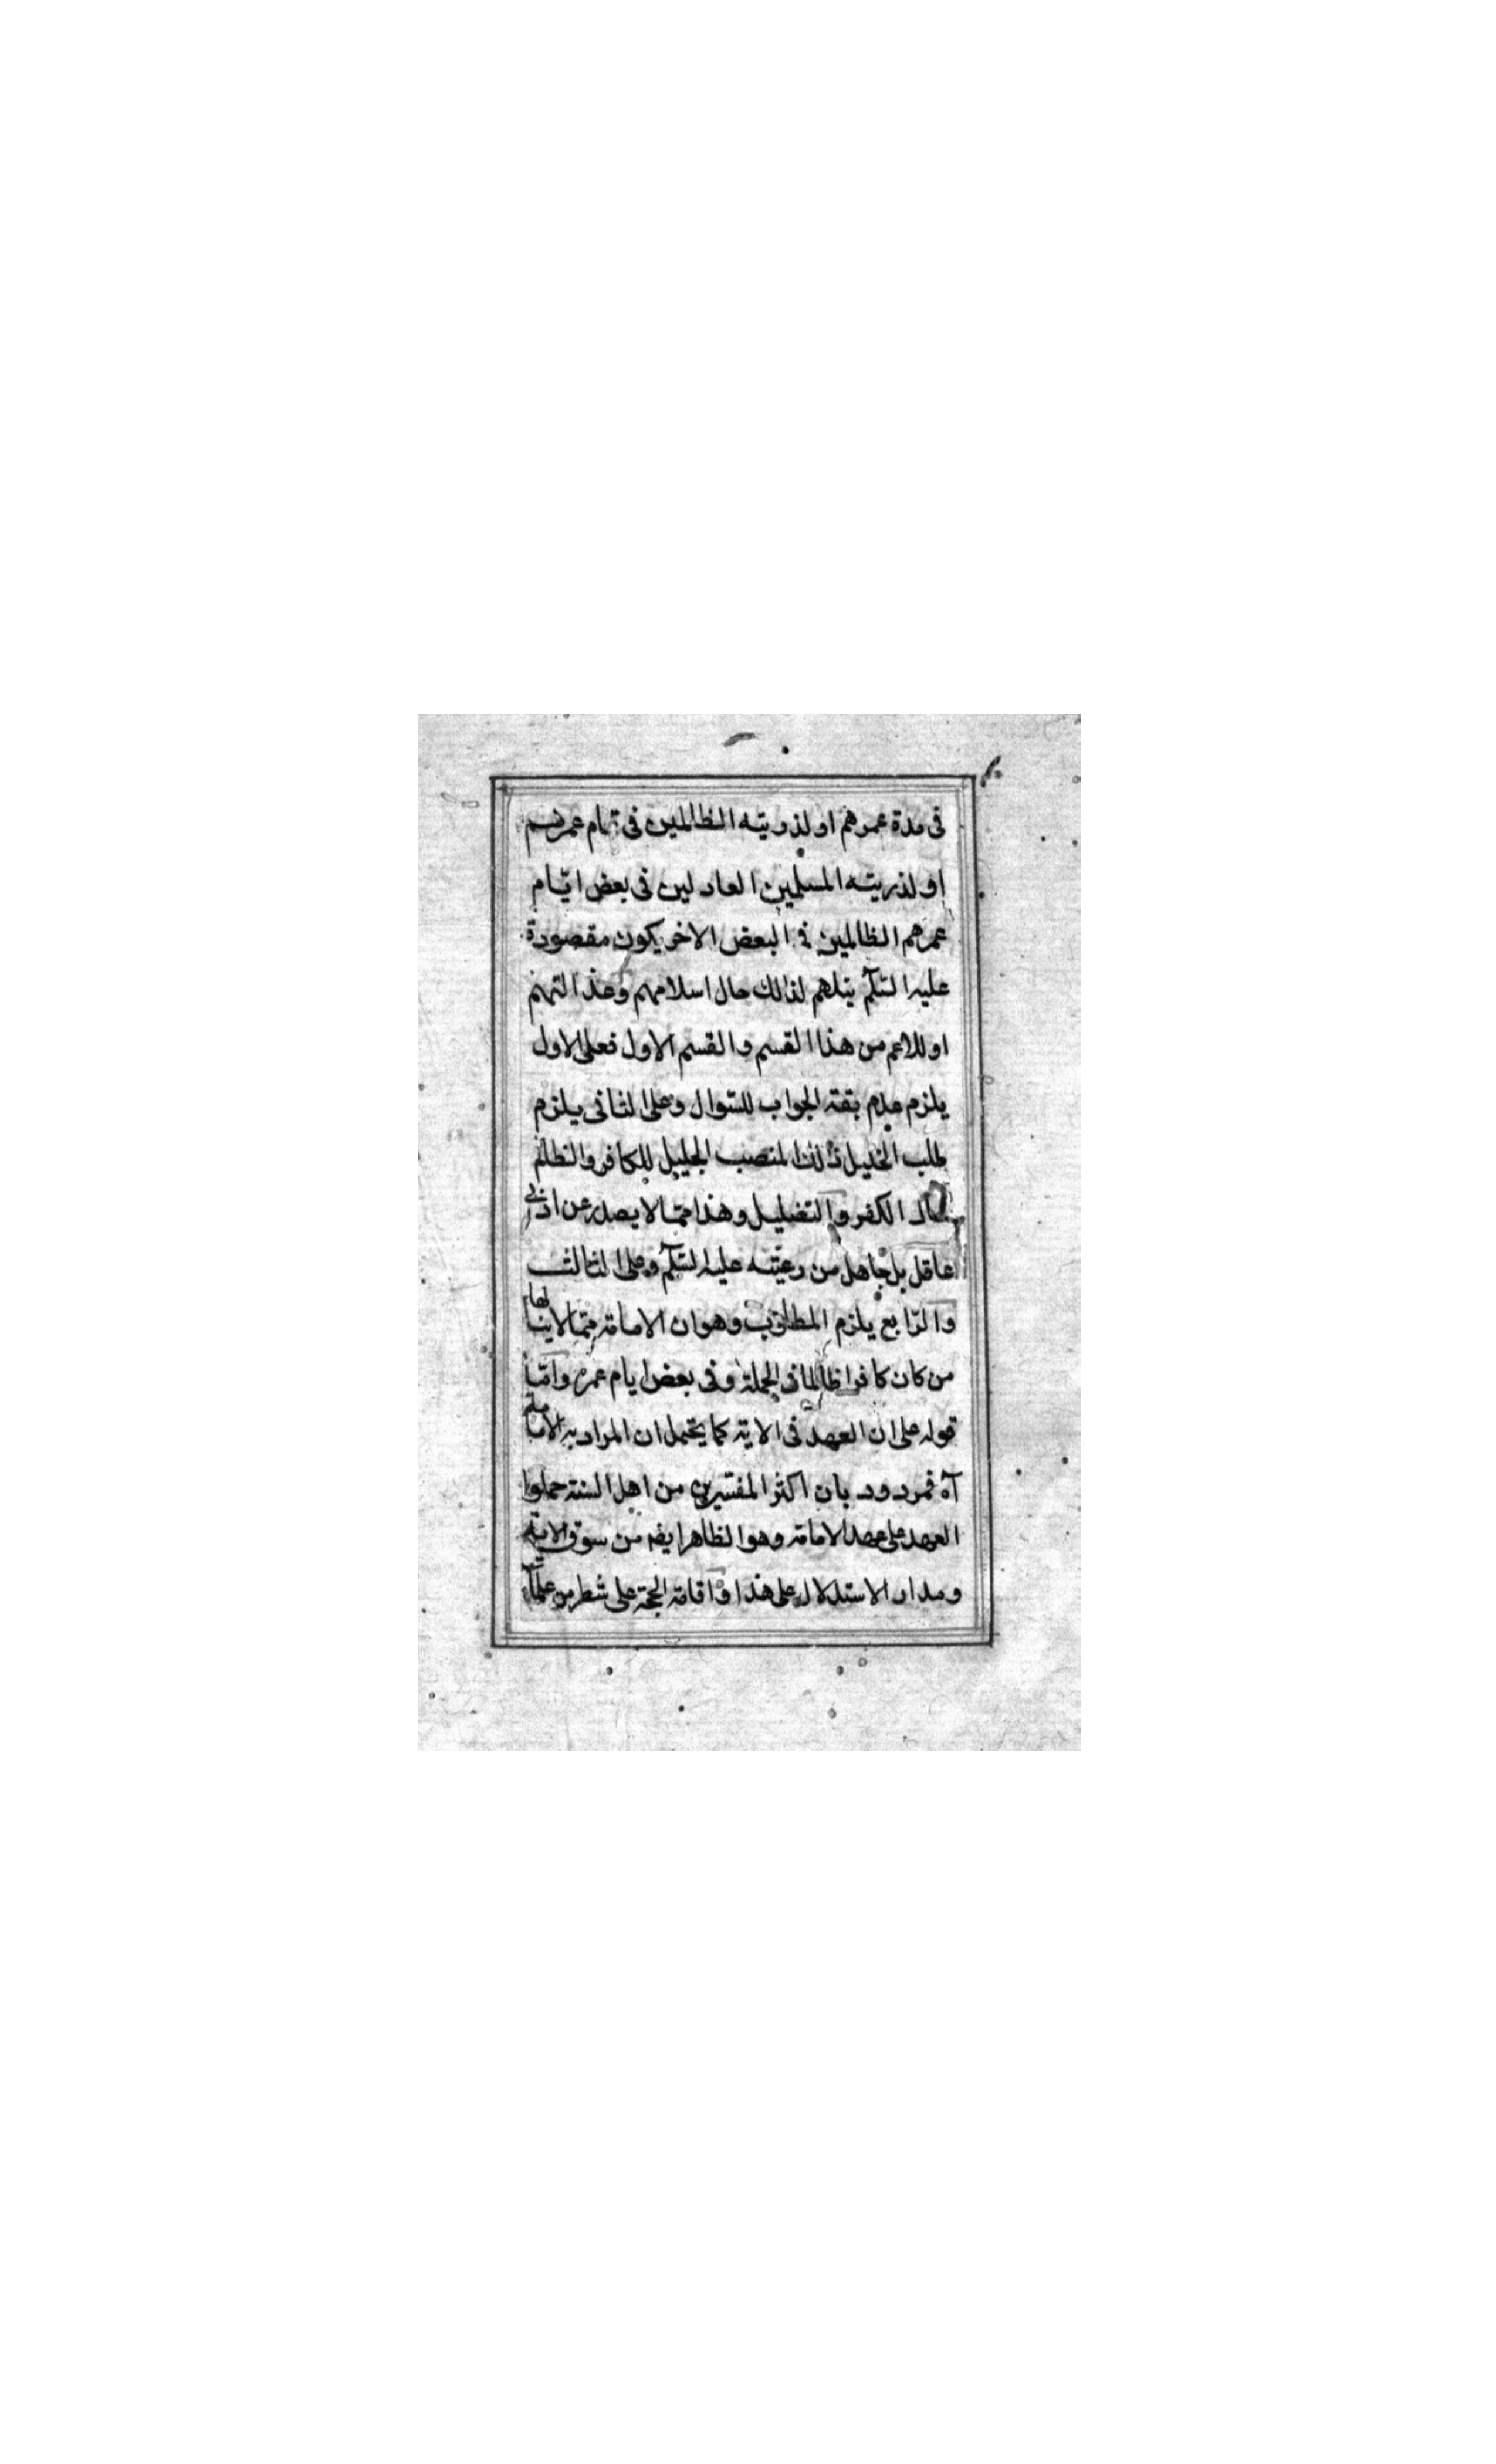 فى مدة عمرهم او لذريته الظالمين فى تمام عمرهم
او لذريته المسلمين العادلين فى بعض ايّام
عمرهم الظالمين فى البعض الاخر يكون مقصودة
عليه السّلم نيلهم لذلك حال اسلامهم و
او للاعم من هذا القسم والقسم الاول فعلى الاول
يلزم عدم الجواب للسّوال وعلى الثانى يلزم
طلب الخليل ذلك المنصب الجليل للكافر والظالم
حال الكفر والتضليل وهذا ممّا لا يصدر عن ادنى
عاقل بل جاهل من رعيّته عليه السّلم وعلى الثالث
والرّابع يلزم المطلوب وهو ان الامامة ممّا لا ينالها
من كان كافرا ظالما فى الجملة وفى بعض ايام عمره وامّا
قوله على ان العهد فى الاية كما يحتمل ان المراد به الامامة
آه فمردود بان اكثر المفسّرين من اهل السنة حملوا
العهد على عهد الامامة وهو الظاهر ايضا من سوق الاية
ومدار الاستدلال على هذا واقامة الحجة على شطر من علمآء